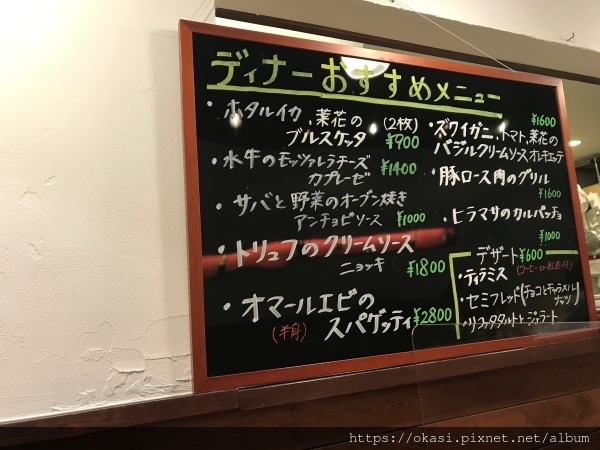 ディナーおすすめメニュー
・ホタルイカ、菜花の (2枚)
ブルスケッタ ¥900
・水牛のモッツァレラチーズ
カプレーゼ ¥1400
・サバと野菜のオーブン焼き
アンチョビソース ¥1000
・トリュフのクリームソース
ニョッキ ¥1800
・オマールエビの
(半身) スパゲッティ ¥2800
¥1600
・ズワイガニ、トマト、菜花の
バジルクリームソース オレキエッテ
・豚ロース肉のグリル
¥1600
・ヒラマサのカルパッチョ
¥1000
デザート ¥600
・ティラミス (コーヒーor紅茶付)
・セミフレッド(チョコとキャラメル
ナッツ)
・リコッタタルトとジェラート
https://okasi.pixnet.net/album